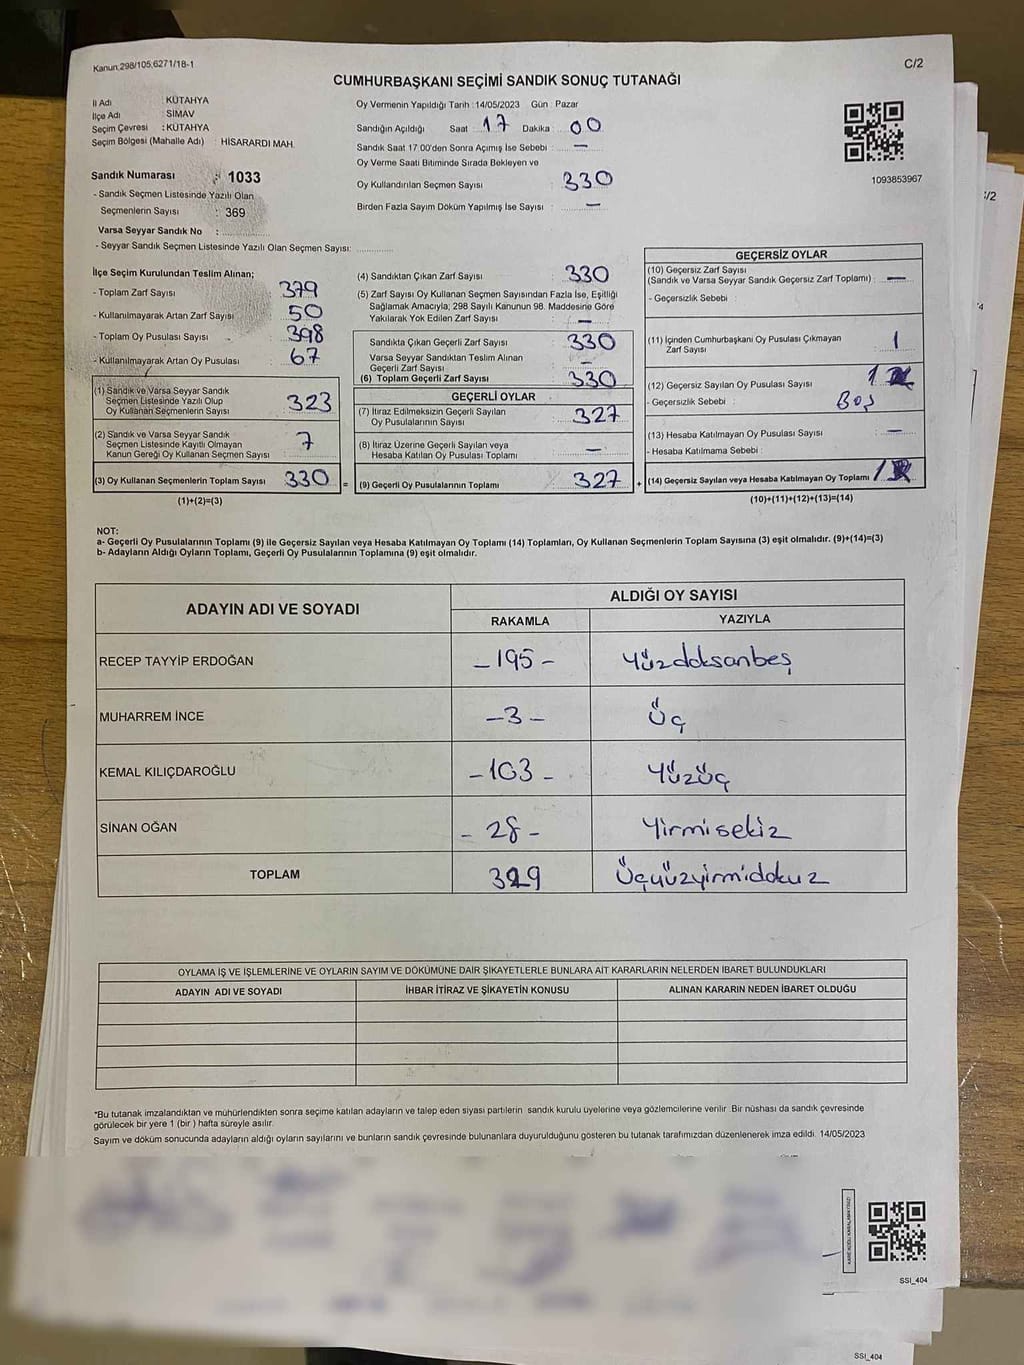 Kanun 298/105,6271/18-1
C/2
CUMHURBAŞKANI SEÇİMİ SANDIK SONUÇ TUTANAĞI
İl Adı : KÜTAHYA
İlçe Adı : SİMAV
Seçim Çevresi : KÜTAHYA
Seçim Bölgesi (Mahalle Adı) : HİSARARDI MAH.
Sandık Numarası : 1033
- Sandık Seçmen Listesinde Yazılı Olan
Seçmenlerin Sayısı : 369
Varsa Seyyar Sandık No :
- Seyyar Sandık Seçmen Listesinde Yazılı Olan Seçmen Sayısı:
Oy Vermenin Yapıldığı Tarih :14/05/2023 Gün : Pazar
Sandığın Açıldığı Saat 17 Dakika : 00
Sandık Saat 17:00'den Sonra Açımış İse Sebebi : —
Oy Verme Saati Bitiminde Sırada Bekleyen ve
Oy Kullandırılan Seçmen Sayısı 330
Birden Fazla Sayım Döküm Yapılmış İse Sayısı : —
1093853967
İlçe Seçim Kurulundan Teslim Alınan;
- Toplam Zarf Sayısı 379
- Kullanılmayarak Artan Zarf Sayısı 50
- Toplam Oy Pusulası Sayısı 398
- Kullanılmayarak Artan Oy Pusulası 67
(1) Sandık ve Varsa Seyyar Sandık
Seçmen Listesinde Yazılı Olup
Oy Kullanan Seçmenlerin Sayısı 323
(2) Sandık ve Varsa Seyyar Sandık
Seçmen Listesinde Kayıtlı Olmayan
Kanun Gereği Oy Kullanan Seçmen Sayısı 7
(3) Oy Kullanan Seçmenlerin Toplam Sayısı 330 =
(1)+(2)=(3)
(4) Sandıktan Çıkan Zarf Sayısı 330
(5) Zarf Sayısı Oy Kullanan Seçmen Sayısından Fazla İse, Eşitliği
Sağlamak Amacıyla; 298 Sayılı Kanunun 98. Maddesine Göre
Yakılarak Yok Edilen Zarf Sayısı —
Sandıkta Çıkan Geçerli Zarf Sayısı 330
Varsa Seyyar Sandıktan Teslim Alınan
Geçerli Zarf Sayısı —
(6) Toplam Geçerli Zarf Sayısı 330
GEÇERLİ OYLAR
(7) İtiraz Edilmeksizin Geçerli Sayılan
Oy Pusulalarının Sayısı 327
(8) İtiraz Üzerine Geçerli Sayılan veya
Hesaba Katılan Oy Pusulası Toplamı —
(9) Geçerli Oy Pusulalarının Toplamı 327 +
GEÇERSİZ OYLAR
(10) Geçersiz Zarf Sayısı
(Sandık ve Varsa Seyyar Sandık Geçersiz Zarf Toplamı) : —
- Geçersizlik Sebebi :
(11) İçinden Cumhurbaşkanı Oy Pusulası Çıkmayan
Zarf Sayısı 1
(12) Geçersiz Sayılan Oy Pusulası Sayısı 1
- Geçersizlik Sebebi : Boş
(13) Hesaba Katılmayan Oy Pusulası Sayısı —
- Hesaba Katılmama Sebebi :
(14) Geçersiz Sayılan veya Hesaba Katılmayan Oy Toplamı 1
(10)+(11)+(12)+(13)=(14)
NOT:
a- Geçerli Oy Pusulalarının Toplamı (9) ile Geçersiz Sayılan veya Hesaba Katılmayan Oy Toplamı (14) Toplamları, Oy Kullanan Seçmenlerin Toplam Sayısına (3) eşit olmalıdır. (9)+(14)=(3)
b- Adayların Aldığı Oyların Toplamı, Geçerli Oy Pusulalarının Toplamına (9) eşit olmalıdır.
ADAYIN ADI VE SOYADI
ALDIĞI OY SAYISI
RAKAMLA YAZIYLA
RECEP TAYYİP ERDOĞAN -195- Yüzdoksanbeş
MUHARREM İNCE -3- Üç
KEMAL KILIÇDAROĞLU -103- Yüzüç
SİNAN OĞAN -28- Yirmisekiz
TOPLAM 329 Üçyüzyirmidokuz
OYLAMA İŞ VE İŞLEMLERİNE VE OYLARIN SAYIM VE DÖKÜMÜNE DAİR ŞİKAYETLERLE BUNLARA AİT KARARLARIN NELERDEN İBARET BULUNDUKLARI
ADAYIN ADI VE SOYADI İHBAR İTİRAZ VE ŞİKAYETİN KONUSU ALINAN KARARIN NEDEN İBARET OLDUĞU
*Bu tutanak imzalandıktan ve mühürlendikten sonra seçime katılan adayların ve talep eden siyasi partilerin sandık kurulu üyelerine veya gözlemcilerine verilir. Bir nüshası da sandık çevresinde
görülecek bir yere 1 (bir ) hafta süreyle asılır.
Sayım ve döküm sonucunda adayların aldığı oyların sayılarını ve bunların sandık çevresinde bulunanlara duyurulduğunu gösteren bu tutanak tarafımızdan düzenlenerek imza edildi. 14/05/2023
SSI_404
SSI_404